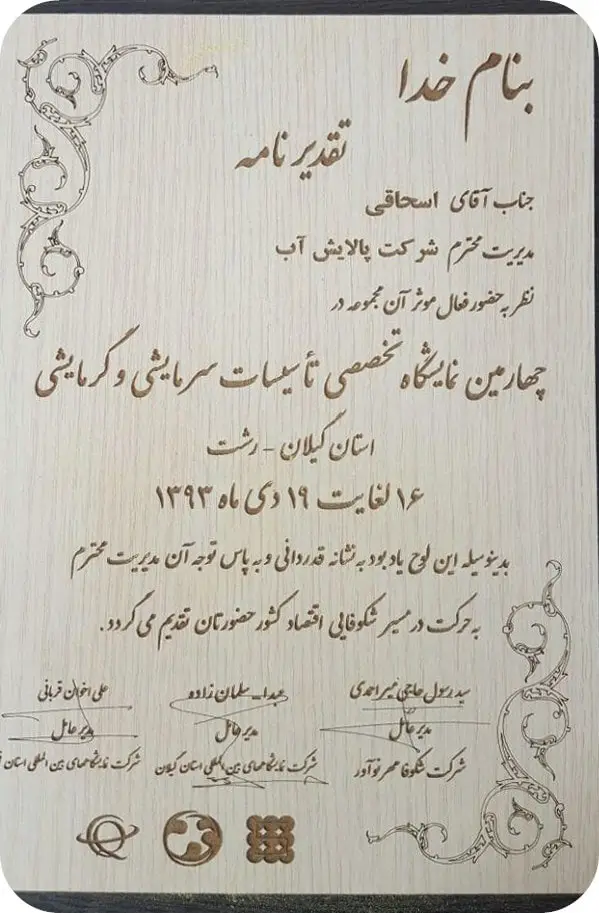 بنام خدا
تقدیر نامه
جناب آقای اسحاقی
مدیریت محترم شرکت پالایش آب
نظر به حضور فعال موثر آن مجموعه در
چهارمین نمایشگاه تخصصی تأسیسات سرمایشی و گرمایشی
استان گیلان - رشت
۱۶ لغایت ۱۹ دی ماه ۱۳۹۳
بدینوسیله این لوح یادبود به نشانه قدردانی و به پاس توجه آن مدیریت محترم
به حرکت در مسیر شکوفایی اقتصاد کشور حضورتان تقدیم می گردد.
سید رسول حاجی میراحمدی
مدیر عامل
شرکت شکوفا مهر نوآور
عبدا... سلمان زاده
مدیر عامل
شرکت نمایشگاههای بین المللی استان گیلان
علی اخوان قربانی
مدیر عامل
شرکت نمایشگاههای بین المللی استان